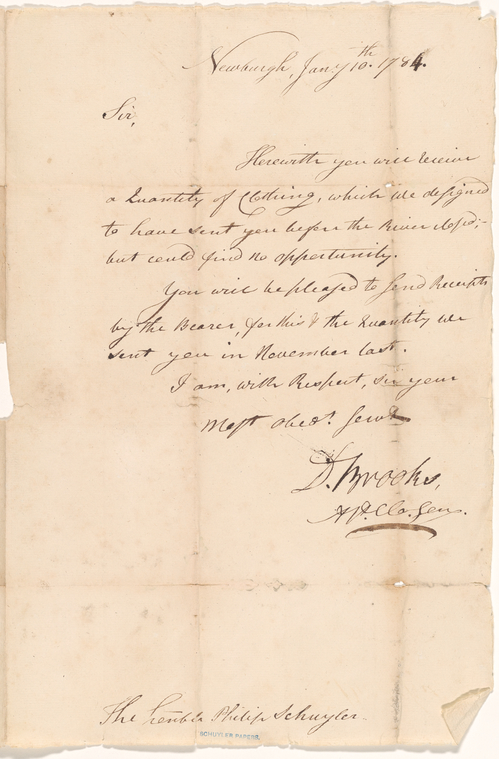 Newburgh, Jany 10.th 1784.
Sir,
Herewith you will receive
a Quantity of Clothing, which we designed
to have sent you before the River closed,-
but could find no opportunity.
You will be pleased to send Receipts
by the Bearer, for this & the Quantity we
sent you in November last.
I am, with Respect, Sir your
Most Obedt. Servt
D. Brooks,
At. Clo. Gen.
The Honble Philip Schuyler.
SCHUYLER PAPERS.